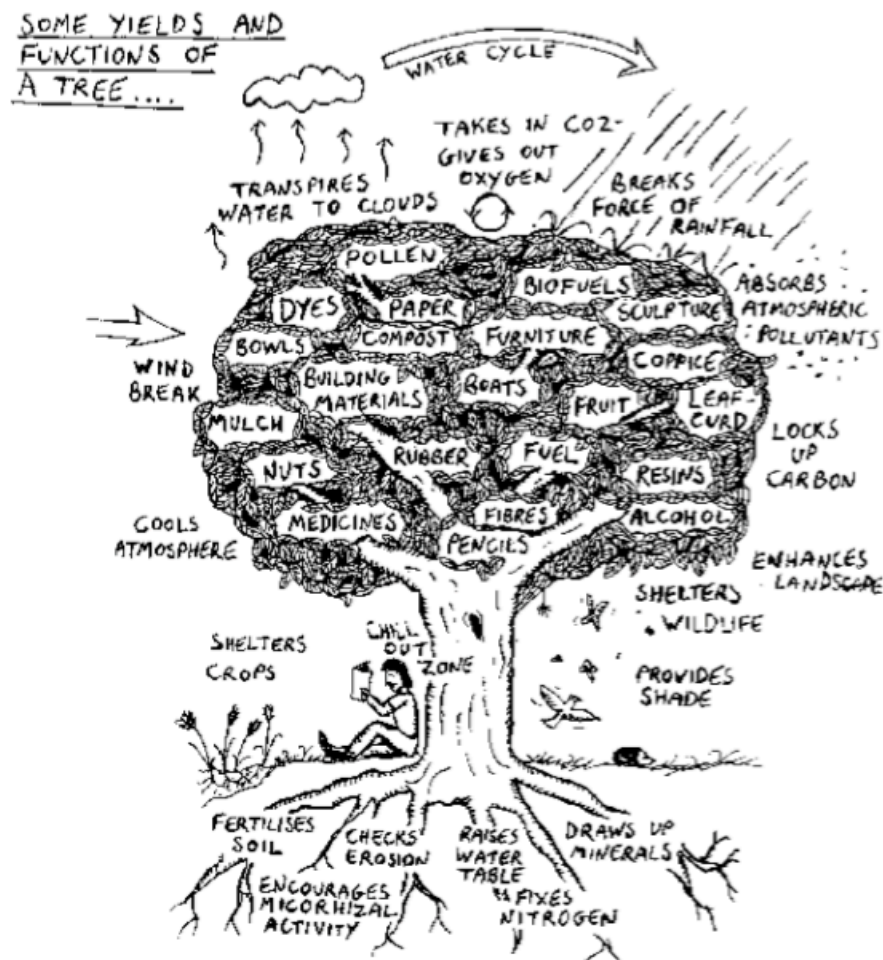 SOME YIELDS AND
FUNCTIONS OF
A TREE....
WATER CYCLE
TAKES IN CO2-
GIVES OUT
OXYGEN
TRANSPIRES
WATER TO CLOUDS
BREAKS
FORCE OF
RAINFALL
POLLEN
BIOFUELS
ABSORBS
ATMOSPHERIC
POLLUTANTS
DYES
PAPER
SCULPTURE
BOWLS
COMPOST
FURNITURE
COPPICE
WIND
BREAK
BUILDING
MATERIALS
BOATS
FRUIT
LEAF-
CURD
MULCH
RUBBER
FUEL
LOCKS
UP
CARBON
NUTS
RESINS
MEDICINES
FIBRES
ALCOHOL
PENCILS
COOLS
ATMOSPHERE
ENHANCES
LANDSCAPE
SHELTERS
WILDLIFE
CHILL
OUT
ZONE
SHELTERS
CROPS
PROVIDES
SHADE
FERTILISES
SOIL
CHECKS
EROSION
RAISES
WATER
TABLE
DRAWS UP
MINERALS
ENCOURAGES
MICORHIZAL
ACTIVITY
FIXES
NITROGEN